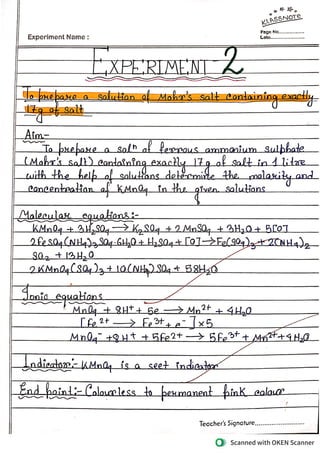 KLASSNOTE
Page No.
Date
Experiment Name :
EXPERIMENT-2
To prepare a solution of Mohr's salt containing exactly
17g of salt
Aim-
To prepare a solⁿ of ferrous ammonium sulphate
(Mohr's salt) containing exactly 17g of salt in 1 litre
with the help of solutions determine the molarity and
concentration of KMnO4 in the given solutions
Molecular equations:-
KMnO4 + 3H2SO4 → K2SO4 + 2MnSO4 + 3H2O + 5[O]
2FeSO4(NH4)2SO4·6H2O + H2SO4 + [O] → Fe(SO4)3 + 2(NH4)2
SO2 + 13H2O
2KMnO4(SO4)3 + 10(NH4)SO4 + 58H2O
Ionic equations
MnO4 + 8H+ + 5e → Mn2+ + 4H2O
[Fe2+ → Fe3+ + e-] x5
MnO4- +8H+ + 5Fe2+ → 5Fe3+ + Mn2+ +4H2O
Indicator:- KMnO4 is a self indicator
End point:- Colourless to permanent pink colour
Teacher's Signature
Scanned with OKEN Scanner